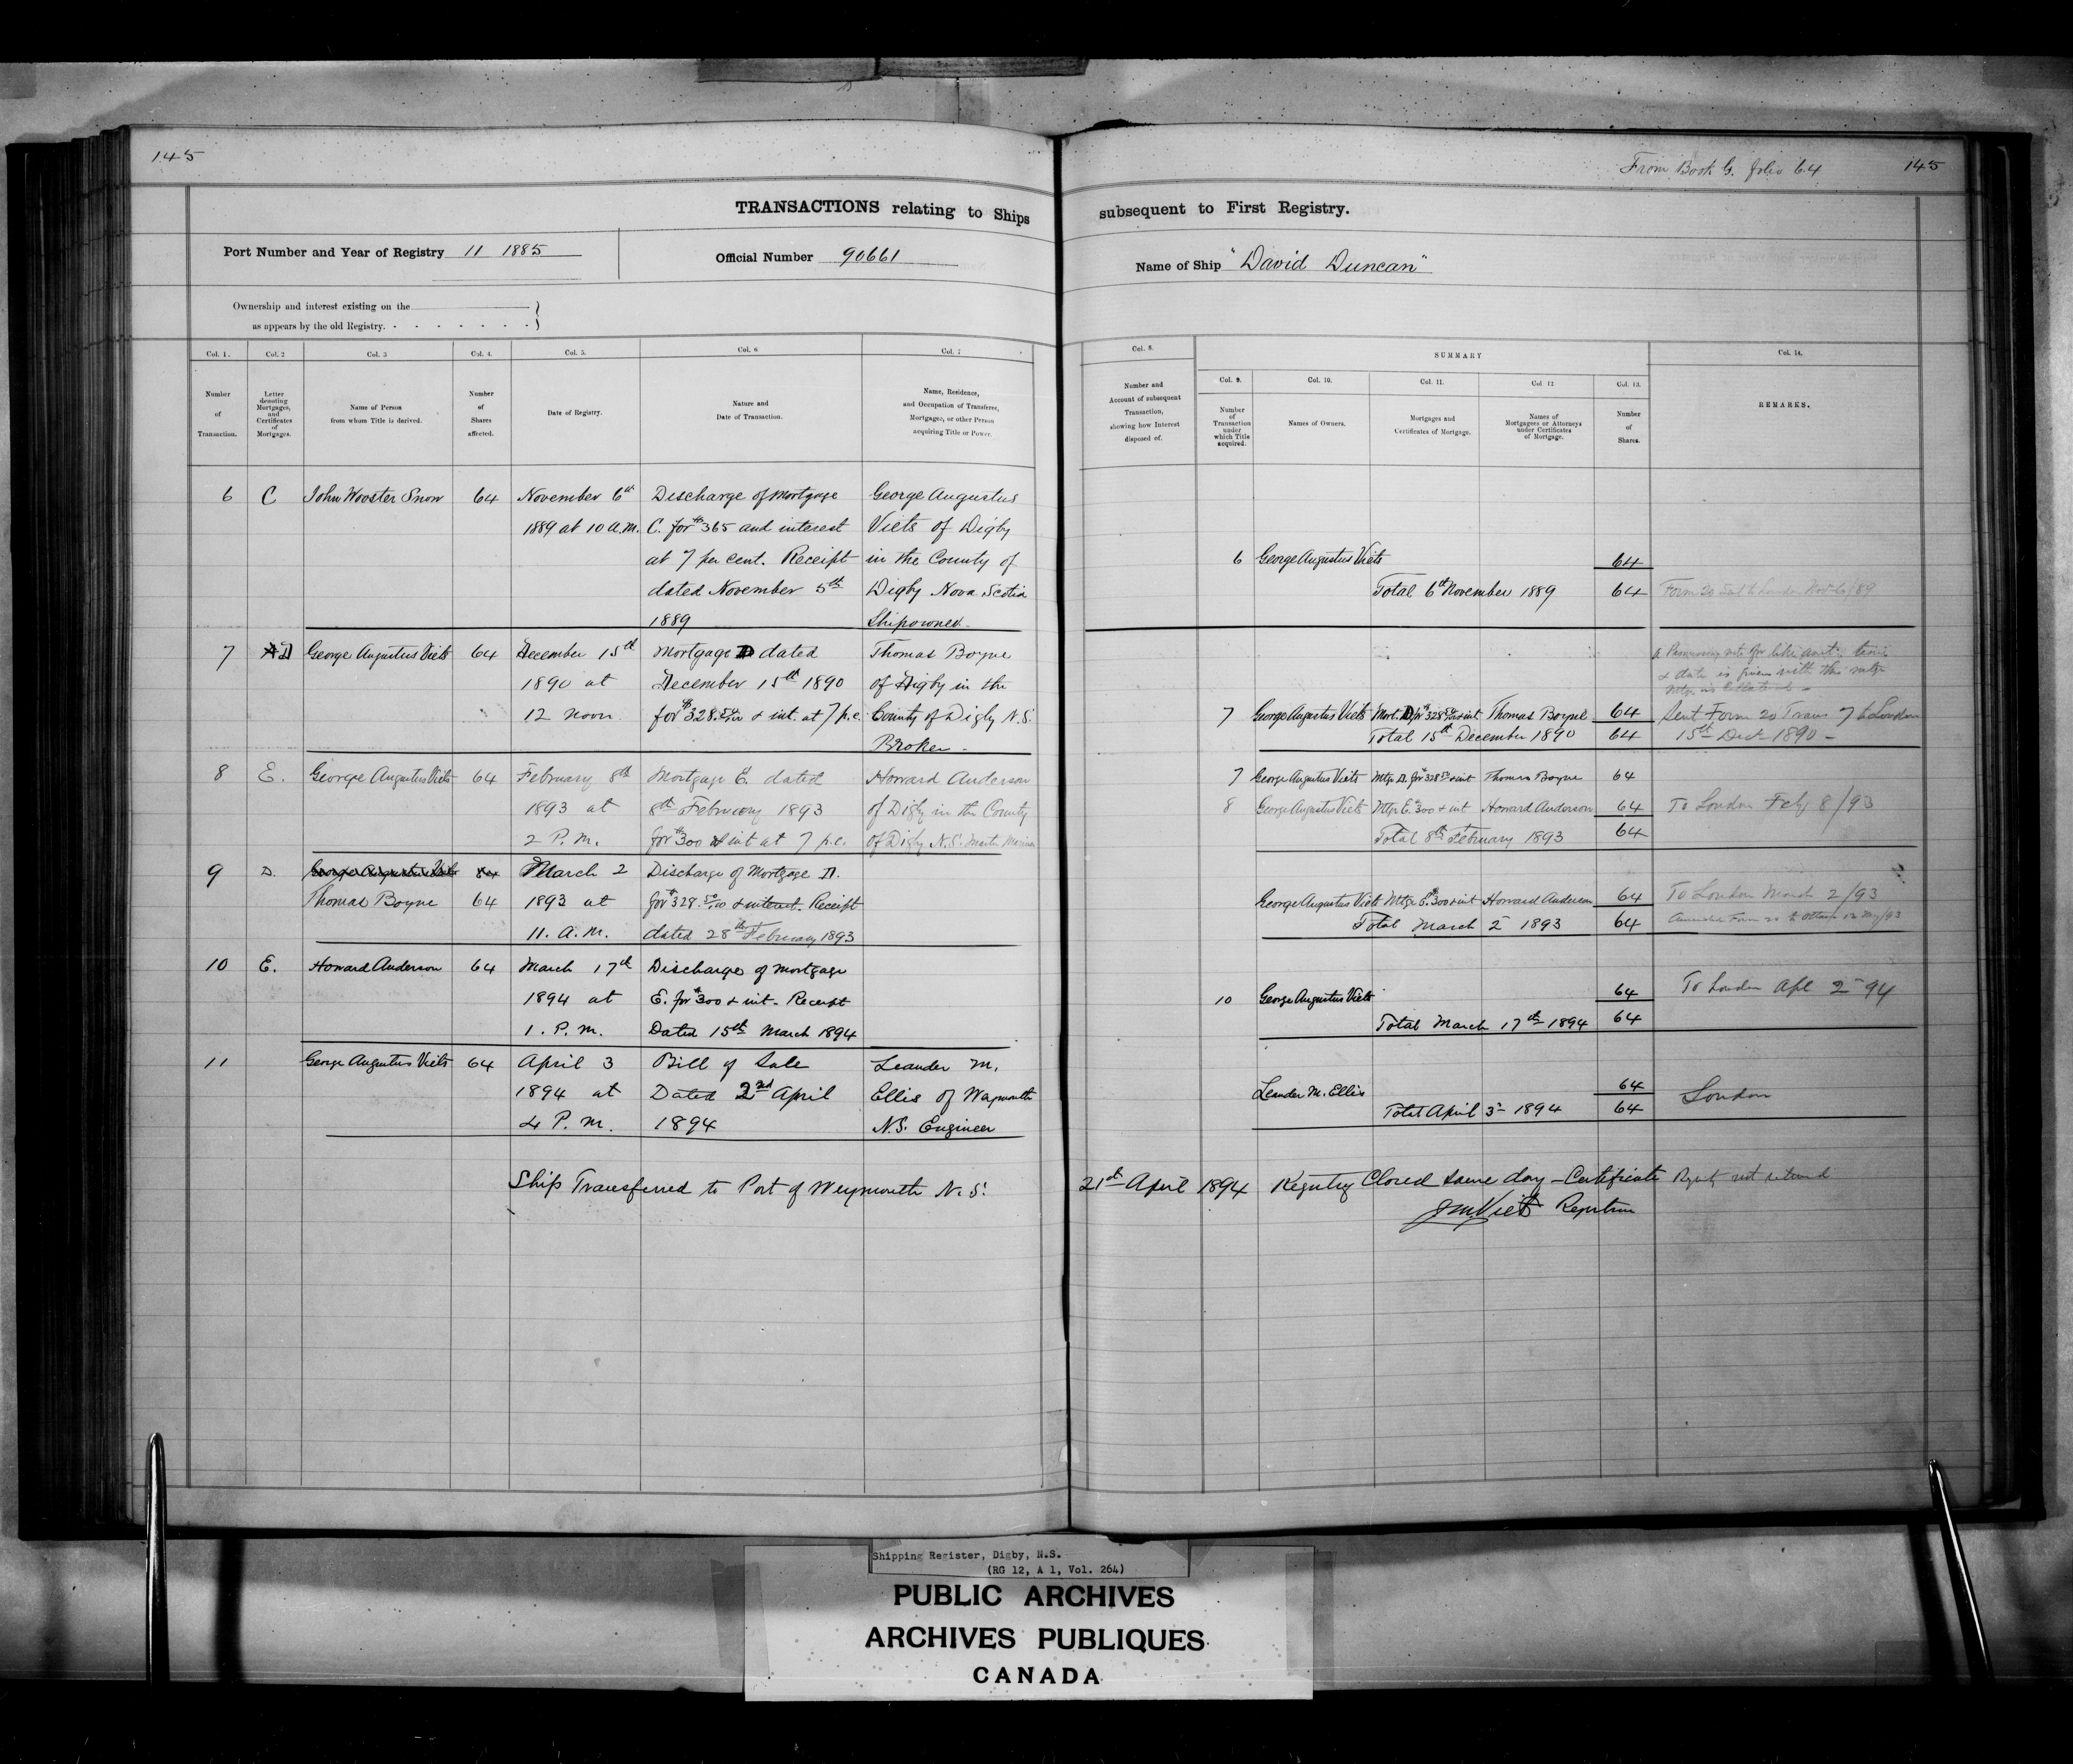 145
From Book G. folio 64
145
TRANSACTIONS relating to Ships
subsequent to First Registry.
Port Number and Year of Registry 11 1885
Official Number 90661
Name of Ship "David Duncan"
Ownership and interest existing on the
as appears by the old Registry.
Col. 1.
Number
of
Transaction.
Col. 2
Letter
denoting
Mortgages,
and
Certificates
of
Mortgages.
Col. 3
Name of Person
from whom Title is derived.
Col. 4.
Number
of
Shares
affected.
Col. 5.
Date of Registry.
Col. 6
Nature and
Date of Transaction.
Col. 7
Name, Residence,
and Occupation of Transferee,
Mortgagee, or other Person
acquiring Title or Power.
Col. 8.
Number and
Account of subsequent
Transaction,
showing how Interest
disposed of.
SUMMARY
Col. 9.
Number
of
Transaction
under
which Title
acquired.
Col. 10.
Names of Owners.
Col. 11.
Mortgages and
Certificates of Mortgage.
Col. 12
Names of
Mortgagees or Attorneys
under Certificates
of Mortgage.
Col. 13.
Number
of
Shares.
Col. 14.
REMARKS.
6 C John Wooster Snow 64 November 6th Discharge of Mortgage George Augustus
1889 at 10 a.m. C. for $365 and interest Viets of Digby
at 7 per cent. Receipt in the County of
dated November 5th Digby Nova Scotia
1889 Shipowner
6 George Augustus Viets 64
Total 6th November 1889 64 Form 20 Sent to London Nov 6/89
7 D George Augustus Viets 64 December 15th Mortgage D dated Thomas Boyne
1890 at December 15th 1890 of Digby in the
12 noon for $328.50/100 & int. at 7 p.c. County of Digby N.S.
Broker
& date is given with this mtge
7 George Augustus Viets Mort. D for $328 50/100 & int Thomas Boyne 64 Sent Form 20 Trans 7 to London
Total 15th December 1890 64 15th Dec 1890
8 E. George Augustus Viets 64 February 8th Mortgage E. dated Howard Anderson
1893 at 8th February 1893 of Digby in the County
2 P.M. for $300 & int at 7 p.c. of Digby N.S. Master Mariner
7 George Augustus Viets Mtge D. for $328 50 & int Thomas Boyne 64
8 George Augustus Viets Mtge E. $300 & int Howard Anderson 64 To London Feby 8/93
Total 8th February 1893 64
9 D. George Augustus Viets 64 March 2 Discharge of Mortgage D.
Thomas Boyne 64 1893 at for $328.50/100 & interest. Receipt
11. A.M. dated 28th February 1893
George Augustus Viets Mtge E. $300 & int Howard Anderson 64 To London March 2/93
Total March 2 1893 64 Form 20 to Ottawa 12 May/93
10 E. Howard Anderson 64 March 17th Discharge of Mortgage
1894 at E. for $300 & int. Receipt
1. P.M. Dated 15th March 1894
10 George Augustus Viets 64 To London Apl 2 94
Total March 17th 1894 64
11 George Augustus Viets 64 April 3 Bill of Sale Leander M.
1894 at Dated 2nd April Ellis of Weymouth
4 P.M. 1894 N.S. Engineer
Leander M. Ellis 64 London
Total April 3 1894 64
Ship Transferred to Port of Weymouth N.S. 21st April 1894 Registry Closed same day – Certificate Registry not returned
JM Viets Registrar
Shipping Register, Digby, N.S.
(RG 12, A 1, Vol. 264)
PUBLIC ARCHIVES
ARCHIVES PUBLIQUES
CANADA